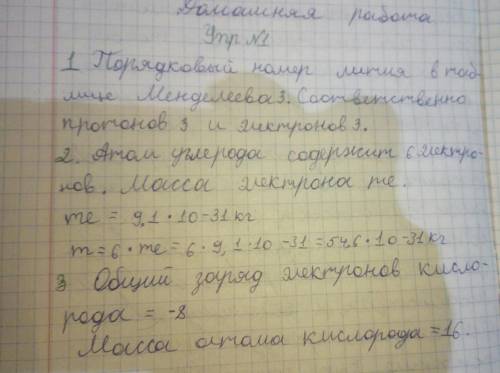 Домашняя работа
Упр №1
1 Порядковый номер лития в таб-
лице Менделеева 3. Соответственно
протонов 3 и электронов 3.
2. Атом углерода содержит 6 электро-
нов. Масса электрона me.
me = 9,1 · 10 -31 кг
m = 6 · me = 6 · 9,1 · 10 -31 = 54,6 · 10 -31 кг
3 Общий заряд электронов кисло-
рода = -8
Масса атома кислорода = 16.